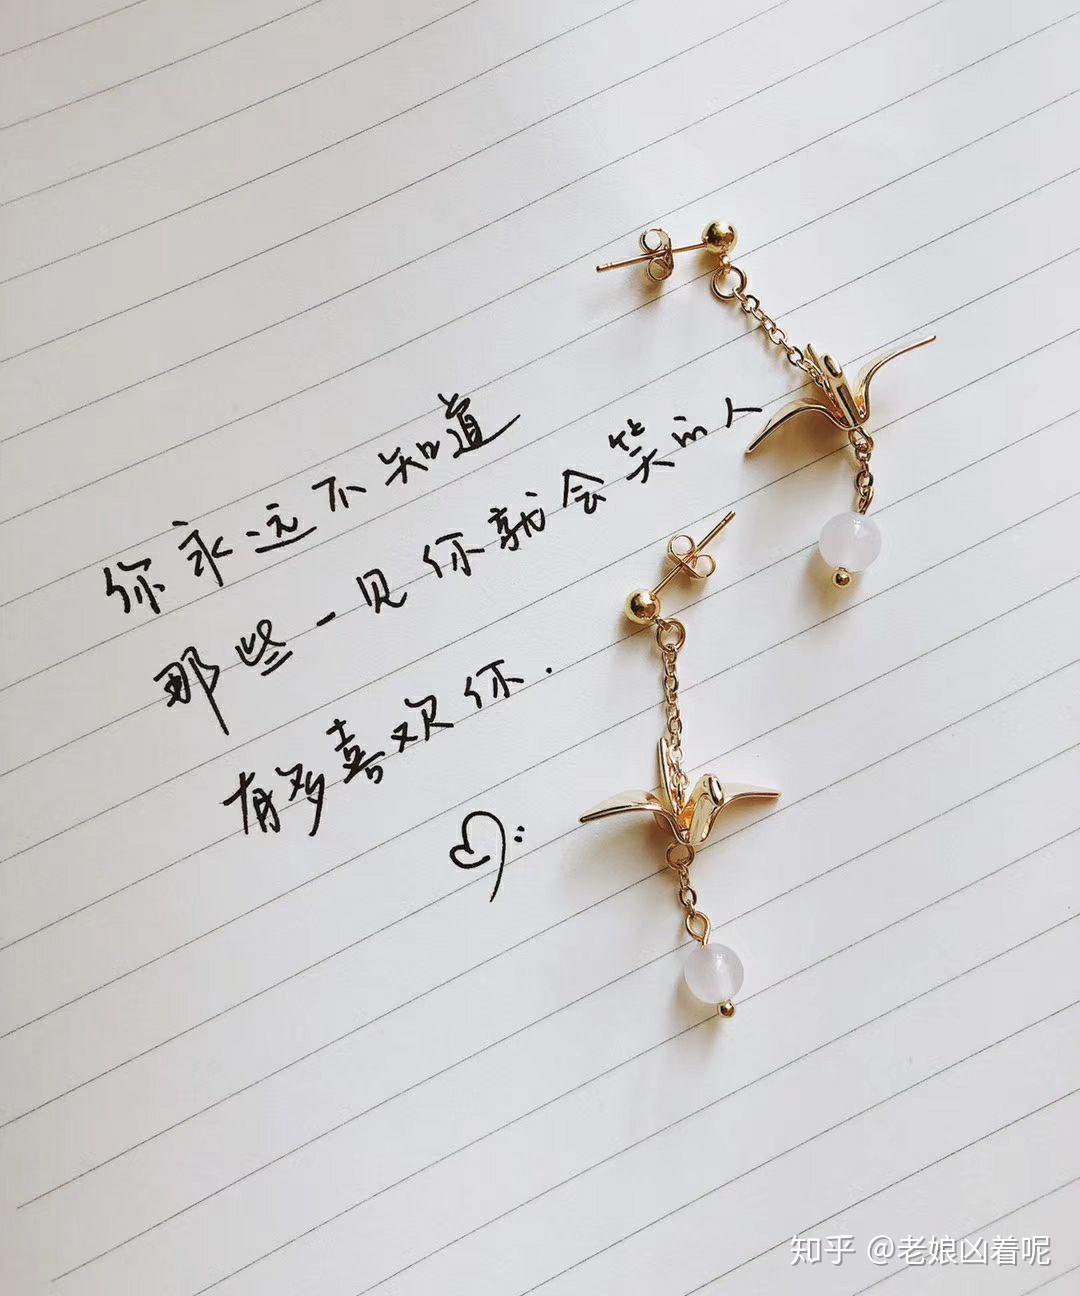 你永远不知道
那些一见你就会笑的人
有多喜欢你.
知乎 @老娘凶着呢